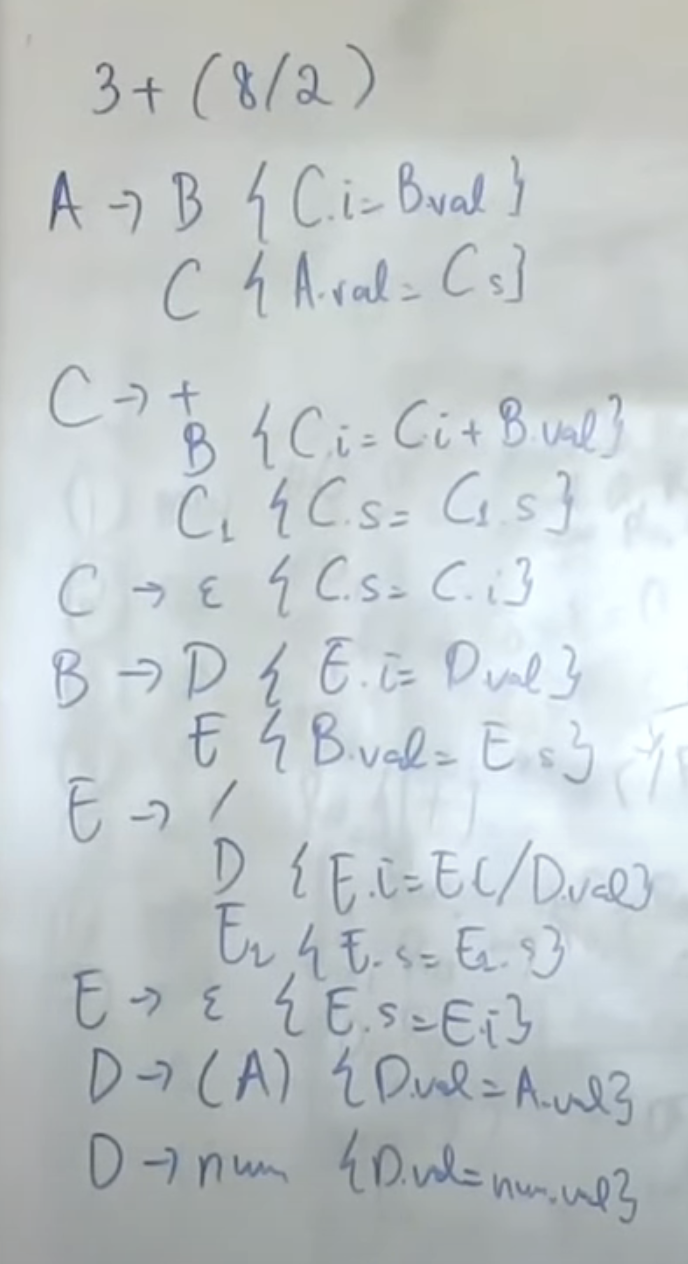 3+(8/2)
A → B { C.i = B.val }
C { A.val = C s }
C → +
B { C.i = C.i + B.val }
C₁ { C.s = C₁.s }
C → ε { C.s = C.i }
B → D { E.i = D.val }
E { B.val = E.s }
E → /
D { E.i = E i / D.val }
E₁ { E.s = E₁.s }
E → ε { E.s = E.i }
D → (A) { D.val = A.val }
D → num { D.val = num.val }